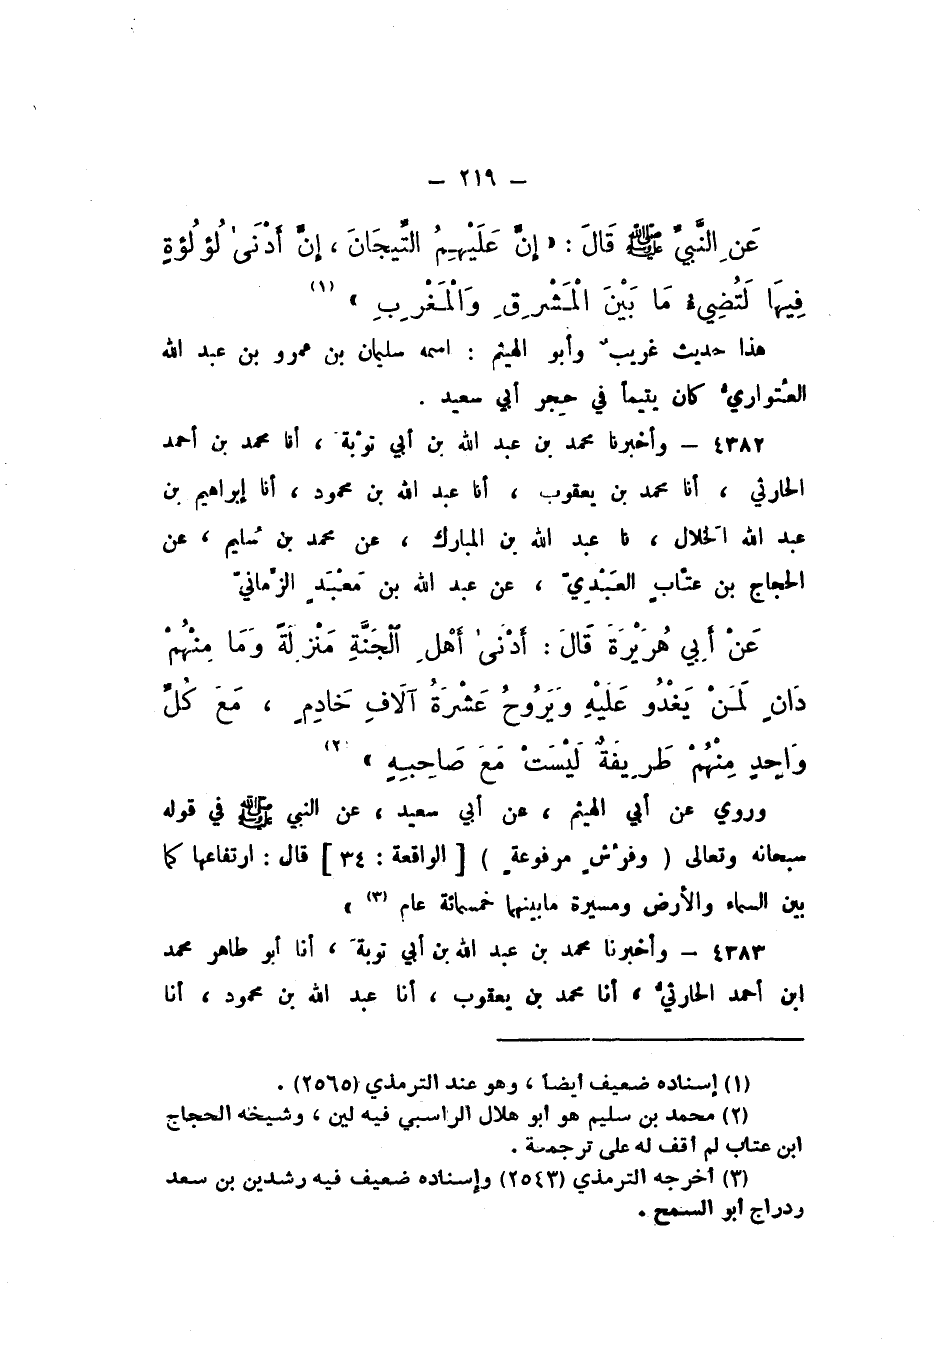 — ٢١٩ —
عَنِ النَّبيِّ ﷺ قَالَ : « إنَّ عَلَيْهِمُ التِّيجَانَ ، إنَّ أَدْنَىٰ لُؤْلُؤةٍ
فِيهَا لَتُضِيءُ مَا بَيْنَ الْمَشْرِقِ وَالْمَغْرِبِ » (١)
هذا حديث غريبٌ وأبو الهيثم : اسمه سليمان بن عمرو بن عبد الله
العُتواريُّ كان يتيماً في حِجر أبي سعيد .
٤٣٨٢ — وأخبرنا محمد بن عبد الله بن أبي توْبةَ ، أنا محمد بن أحمد
الحارثي ، أنا محمد بن يعقوب ، أنا عبد الله بن محمود ، أنا إبراهيم بن
عبد الله الخلال ، نا عبد الله بن المبارك ، عن محمد بن سُليم ، عن
الحجاج بن عتّابٍ العَبْدِيّ ، عن عبد الله بن مَعْبَدٍ الزِّمانيّ
عَنْ أَبِي هُرَيْرَةَ قَالَ : أَدْنَىٰ أَهْلِ الْجَنَّةِ مَنْزِلَةً وَمَا مِنْهُمْ
دَانٍ لَمَنْ يَغْدُو عَلَيْهِ وَيَرُوحُ عَشْرَةُ آلَافِ خَادِمٍ ، مَعَ كُلِّ
وَاحِدٍ مِنْهُمْ طَرِيفَةٌ لَيْسَتْ مَعَ صَاحِبِهِ » (٢)
وروي عن أبي الهيثم ، عن أبي سعيد ، عن النبي ﷺ في قوله
سبحانه وتعالى ( وفُرُشٍ مرفوعةٍ ) [ الواقعة : ٣٤ ] قال : ارتفاعها كما
بين السماء والأرض ومسيرة مابينها خمسمائة عام (٣) »
٤٣٨٣ — وأخبرنا محمد بن عبد الله بن أبي توبةَ ، أنا أبو طاهر محمد
ابن أحمد الحارثيُّ ، أنا محمد بن يعقوب ، أنا عبد الله بن محمود ، أنا
(١) إسناده ضعيف أيضاً ، وهو عند الترمذي (٢٥٦٥) .
(٢) محمد بن سليم هو أبو هلال الراسبي فيه لين ، وشيخه الحجاج
ابن عتاب لم أقف له على ترجمة .
(٣) أخرجه الترمذي (٢٥٤٣) وإسناده ضعيف فيه رشدين بن سعد
ودراج أبو السمح .